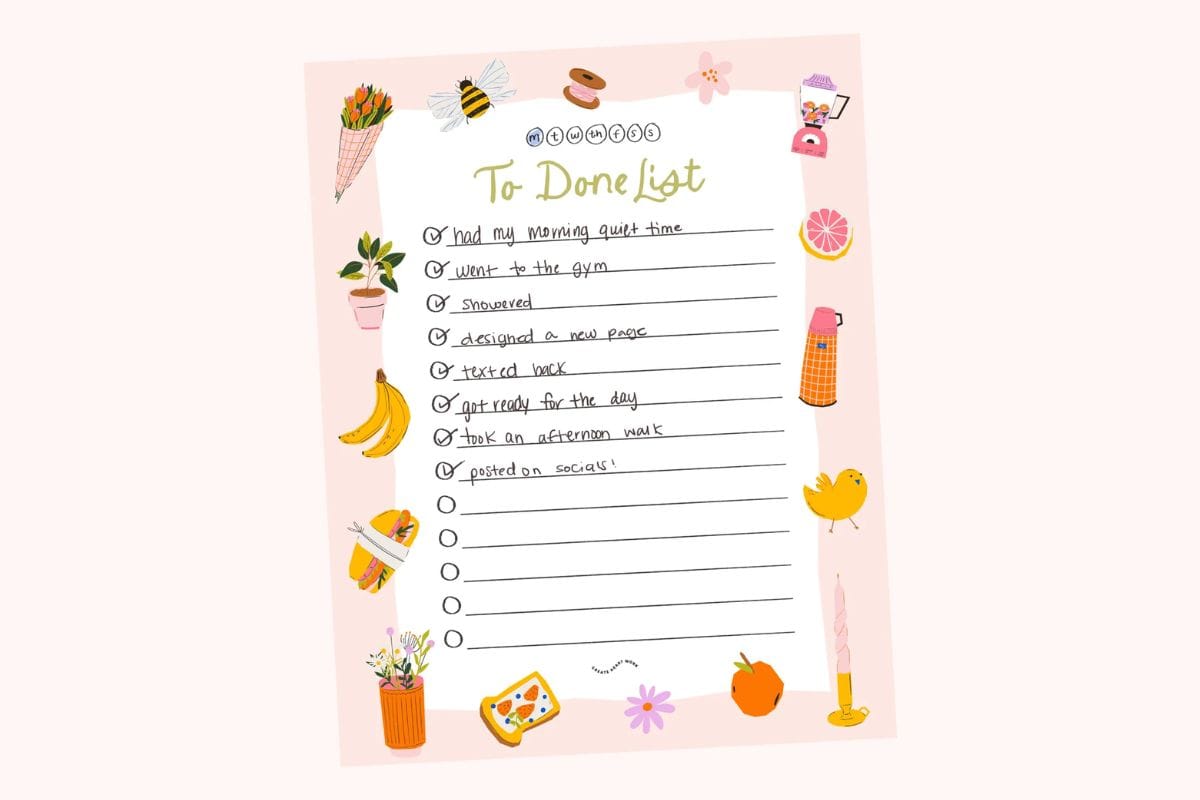 m t w th f s s
To Done List
had my morning quiet time
went to the gym
showered
designed a new page
texted back
got ready for the day
took an afternoon walk
posted on socials!
CREATE HEART WORK